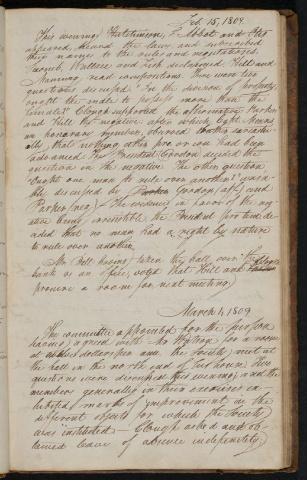 Feb. 15, 1809.
This evening Hutchinson, Abbot and
appeared, heard the laws and subscribed
their names to the rules and regulations.
Wallace and declaimed Hill and
Manning read compositions. There were two
questions discussed In the division of property
ought the male to possess more than the
female? Clough supported the affirmative Parker
and Hill the negative after which Capt.
an honorary member, observed
that nothing either pro or con had been
advanced. The President Gordon decided the
question in the negative. The other question
Ought one man to rule over another? was
ably discussed by Gordon (aff.) and
Parker (neg.) The evidence in favor of the neg
ative being irresistible the President pro tem de
cided that no man had a right by nature
to rule over another.
Mr. Bell having taken the hall over the
bank as an office, voted that Hill and
procure a room for next meeting
March 1, 1809
The committee appointed for the purpose
having agreed with Mr for a room
at dollars per ann. the Society met at
the hall in the north end of his house. Two
questions were discussed this evening and the
members generally in their exercises ex
hibited marks of improvement in the
different objects for which the Society
was instituted — Clough asked and ob
tained leave of absence indefinitely.